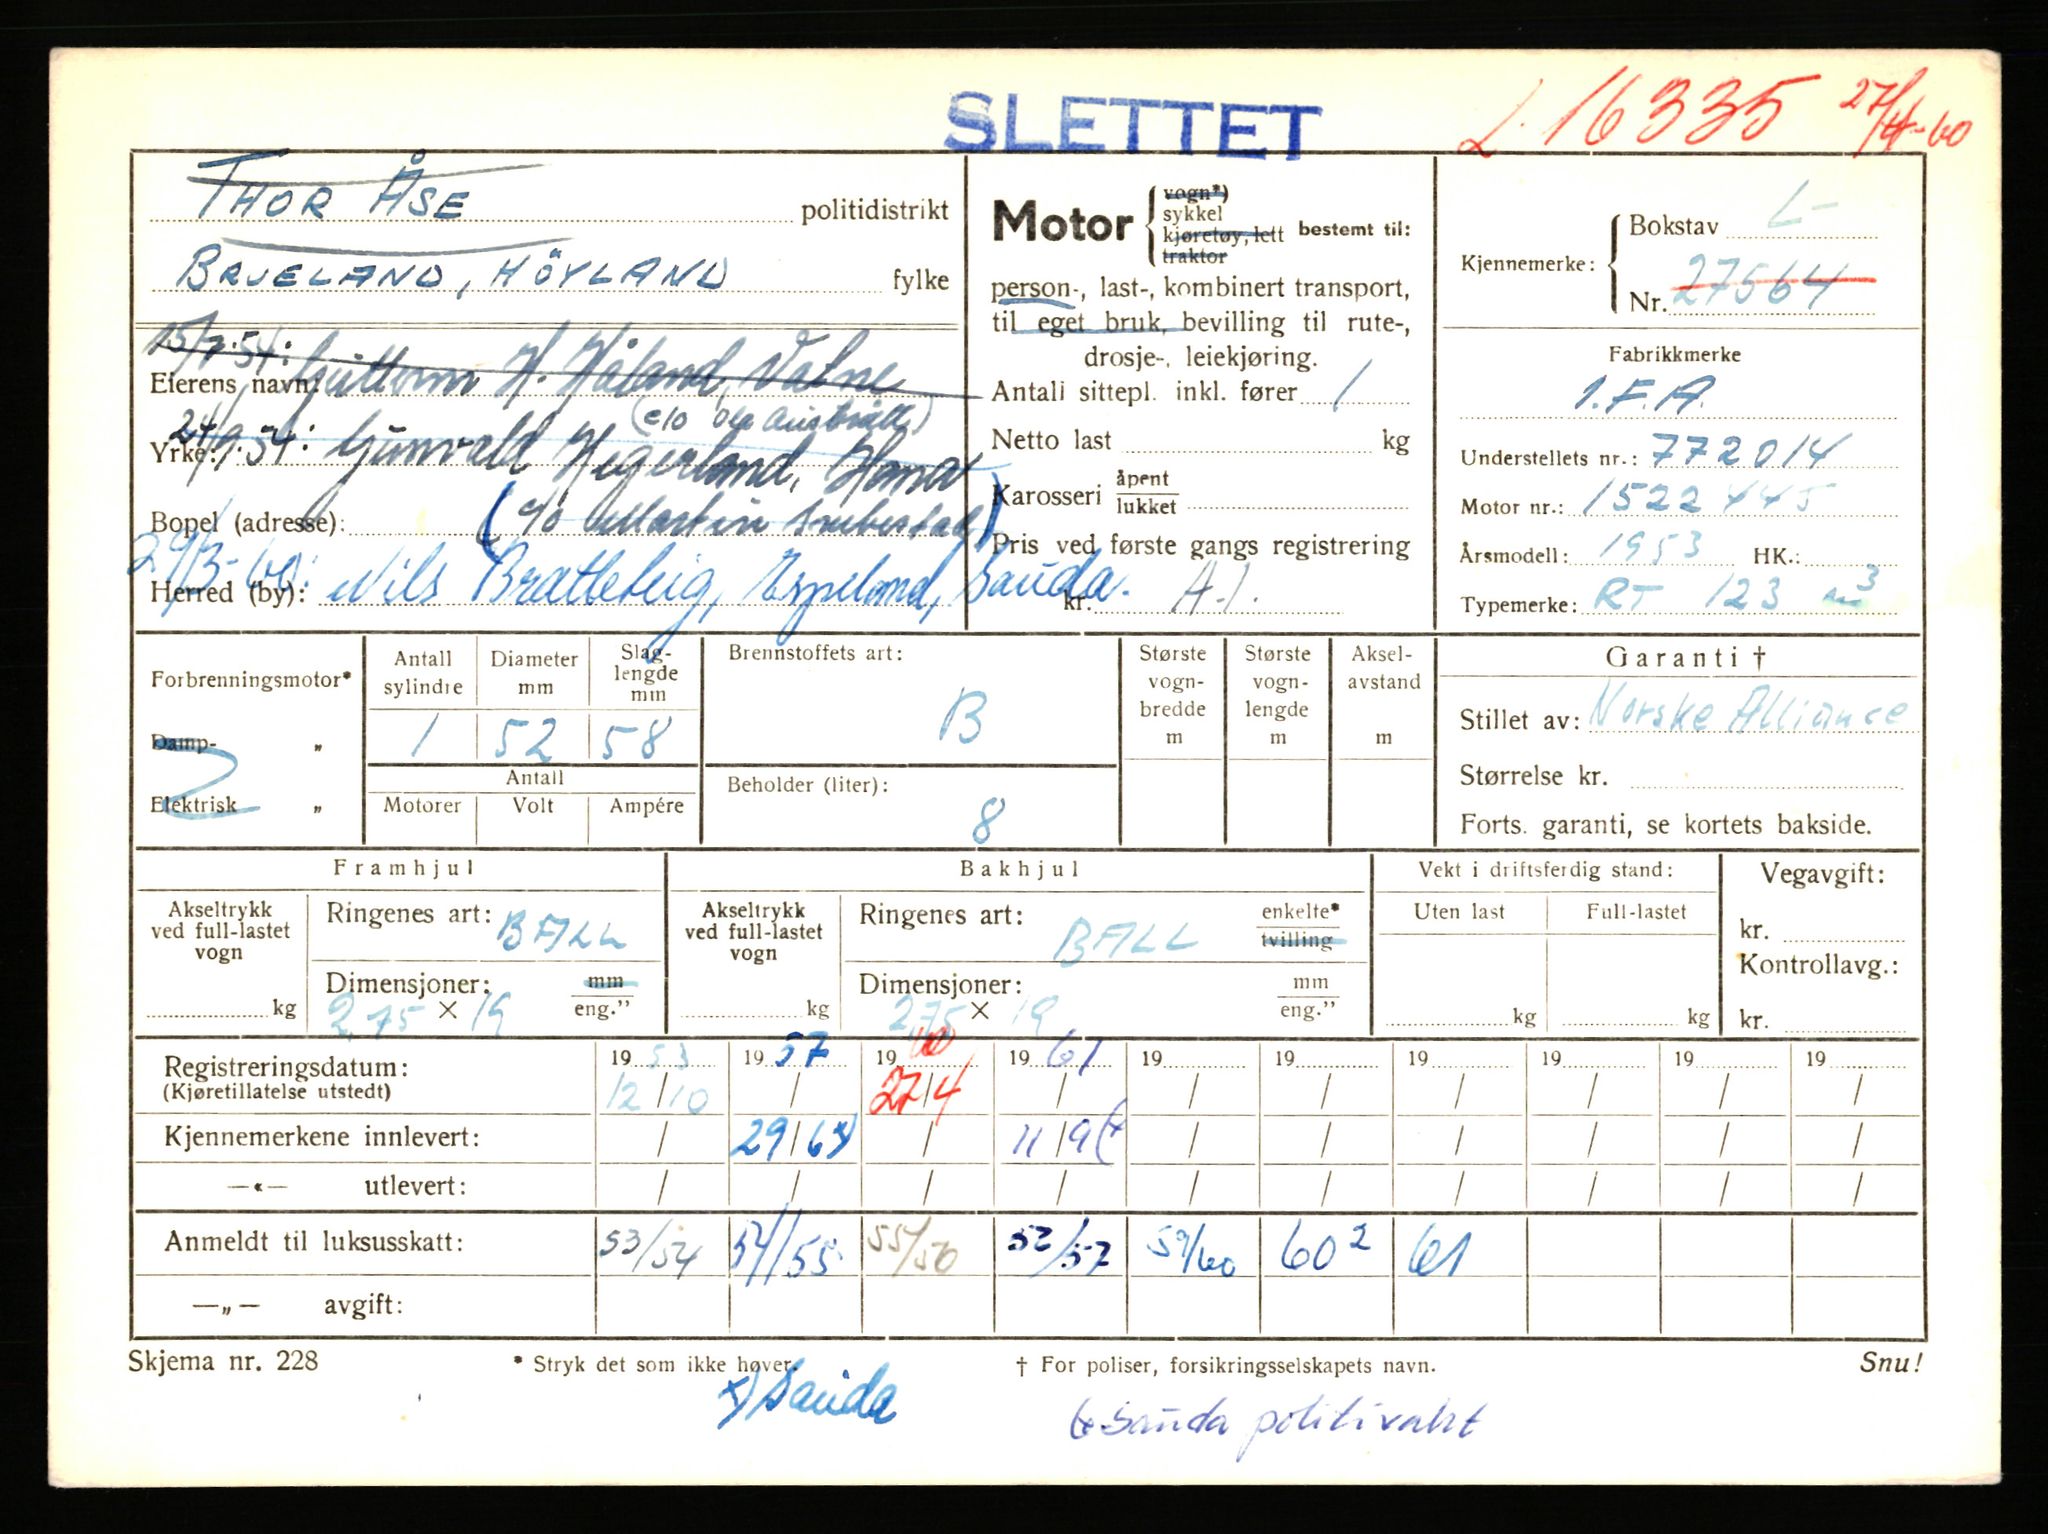 SLETTET
L. 16335 27/4-60
THOR ÅSE politidistrikt
BRUELAND, HÖYLAND fylke
Motor vogn*) sykkel kjøretøy, lett traktor bestemt til:
person-, last-, kombinert transport,
til eget bruk, bevilling til rute-,
drosje-, leiekjøring.
Antall sittepl. inkl. fører 1
Netto last kg
Karosseri åpent lukket
Pris ved første gangs registrering
kr. A.1.
Kjennemerke: Bokstav L-
Nr. 27564
Fabrikkmerke
I.F.A.
Understellets nr.: 772014
Motor nr.: 1522445
Årsmodell: 1953 HK.:
Typemerke: RT 123 m3
15/7.54: Guttorm H. Håland, Vatne
Eierens navn:
(c/o Ole Austrått)
24/9.54: Gunvald Hegerland, Hana
Yrke:
(c/o Martin
Bopel (adresse):
29/3-60: Nils Brattebeig, Espeland, Sauda.
Herred (by):
Forbrenningsmotor*
Damp- „
Elektrisk „
Antall sylindre Diameter mm Slaglengde mm
1 52 58
Antall
Motorer Volt Ampére
Brennstoffets art:
B
Beholder (liter):
8
Største vogn-bredde m
Største vogn-lengde m
Aksel-avstand m
Garanti †
Stillet av: Norske Alliance
Størrelse kr.
Forts. garanti, se kortets bakside.
Framhjul
Akseltrykk ved full-lastet vogn kg
Ringenes art: BALL
Dimensjoner: mm eng."
2,75 × 19
Bakhjul
Akseltrykk ved full-lastet vogn kg
Ringenes art: BALL enkelte* tvilling
Dimensjoner: mm eng."
2,75 × 19
Vekt i driftsferdig stand:
Uten last Full-lastet
kg kg
Vegavgift:
kr.
Kontrollavg.:
kr.
Registreringsdatum: 1953 1957 1960 1961 19 19 19 19 19 19
(Kjøretillatelse utstedt) 12/10 / 27/4 / / / / / / /
Kjennemerkene innlevert: / 29/6 x) / 11/9 (x / / / / / /
—«— utlevert: / / / / / / / / / /
Anmeldt til luksusskatt: 53/54 54/55 55/56 52/57 59/60 60² 61
—„— avgift:
Skjema nr. 228 * Stryk det som ikke høver. † For poliser, forsikringsselskapets navn. Snu!
x) Sauda
(x Sauda politivakt